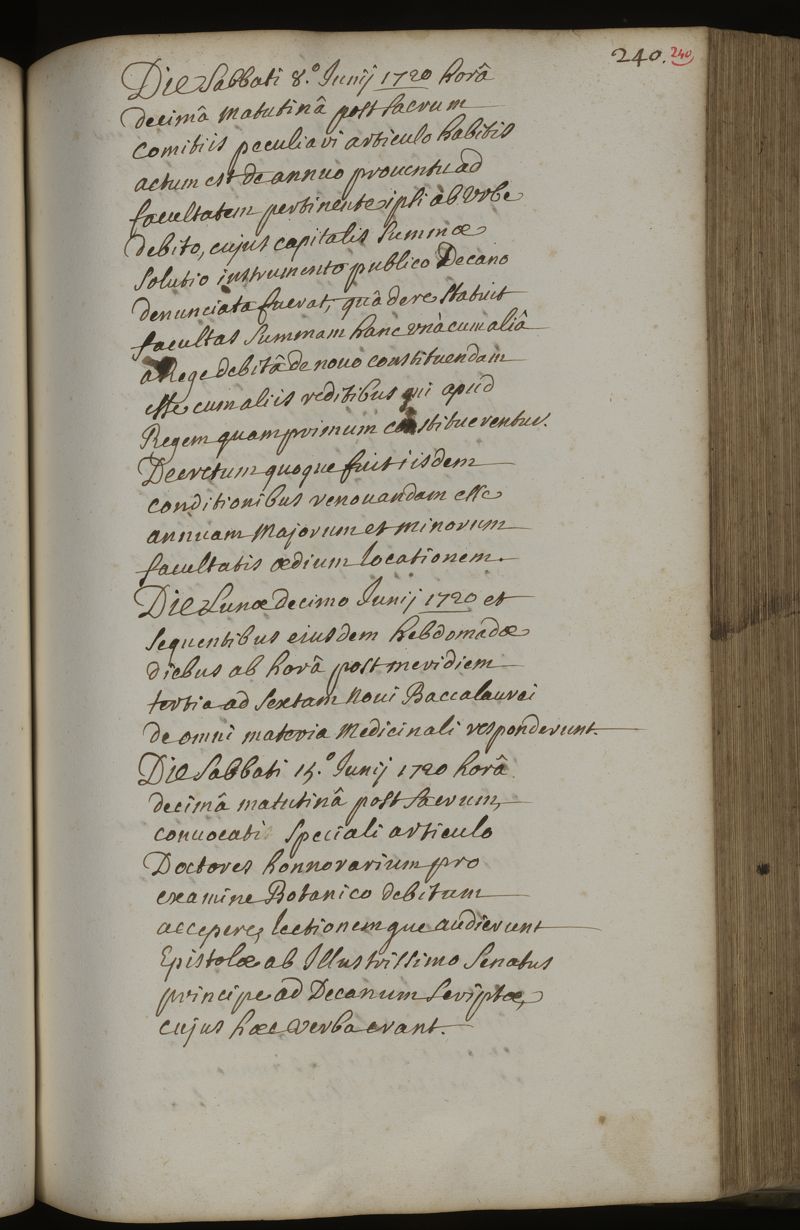 240. 240
Die Sabbati 8.° Junij 1720 horâ
decimâ matutinâ post sacrum
comitiis peculiari articulo habitis
actum est de annuo prouentu ad
facultatem pertinente ipsi ab Urbe
debito, cujus capitalis summæ
solutio instrumento publico Decano
denunciata fuerat, quâ de re statuit
facultas summam hanc unà cum aliâ
a Rege debitâ de nouo constituendam
esse cum aliis reditibus qui apud
Regem quamprimum constituerentur.
Decretum quoque fuit iisdem
conditionibus renouandam esse
annuam Majorum et minorum
facultatis ædium locationem.
Die Lunæ decimo Junij 1720 et
sequentibus eiusdem hebdomadæ
diebus ab horâ post meridiem
tertia ad sextam Noui Baccalaurei
de omni materia Medicinali responderunt.
Die Sabbati 15.° Junij 1720 horâ
decimâ matutinâ post sacrum,
conuocati speciali articulo
Doctores honnorarium pro
examine Botanico debitum
accepere, lectionemque audierunt
Epistolæ ab Illustrissimo Senatus
principe ad Decanum scriptæ,
cujus hæc verba erant.